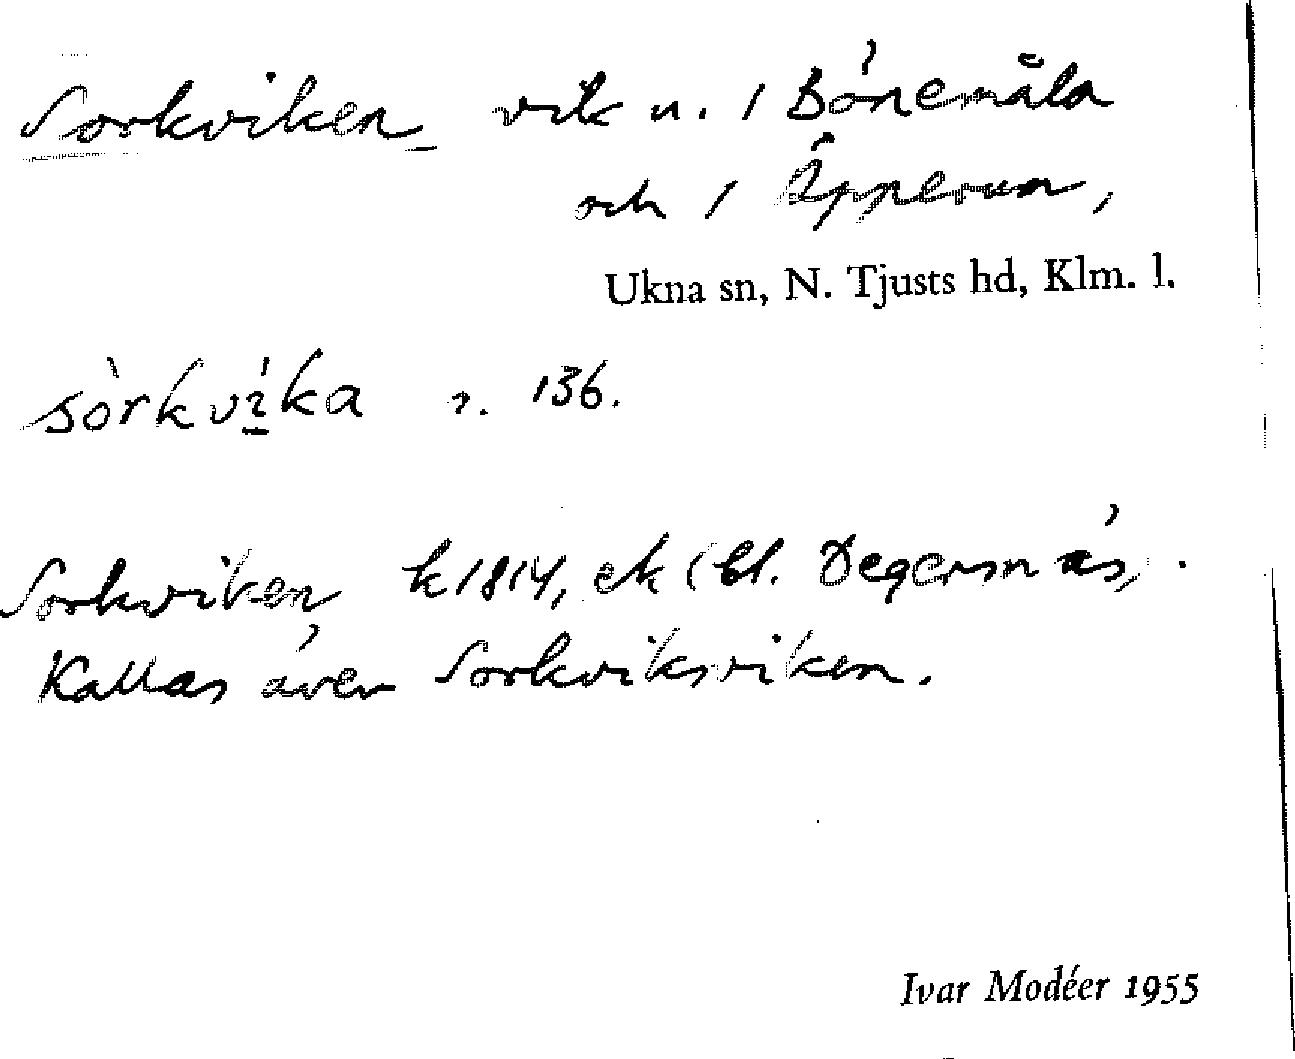 Sorkviken vik u. / Bönemåla
och / Äpperum,
Ukna sn, N. Tjusts hd, Klm. l.
sòrkvíka 2. 136.
Sorkviken k 1814, ek (bl. Degersnäs.
Kallas även Sorkviksviken.
Ivar Modéer 1955